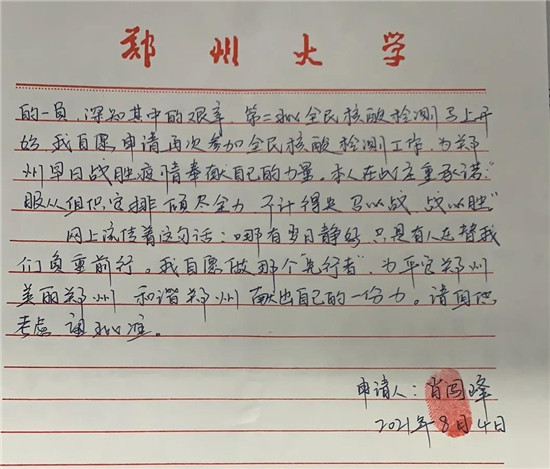 郑州大学
的一员，深知其中的艰辛。第二批全民核酸检测马上开
始，我自愿申请再次参加全民核酸检测工作，为郑
州早日战胜疫情奉献自己的力量。本人在此庄重承诺："
服从组织安排 倾尽全力，不计得失 可以战，战必胜"
网上流传着这句话："哪有岁月静好，只是有人在替我
们负重前行。我自愿做那个"先行者"，为平安郑州
美丽郑州 和谐郑州 献出自己的一份力。请组织
考虑 调批准。
申请人：肖
峰
2021年8月4日